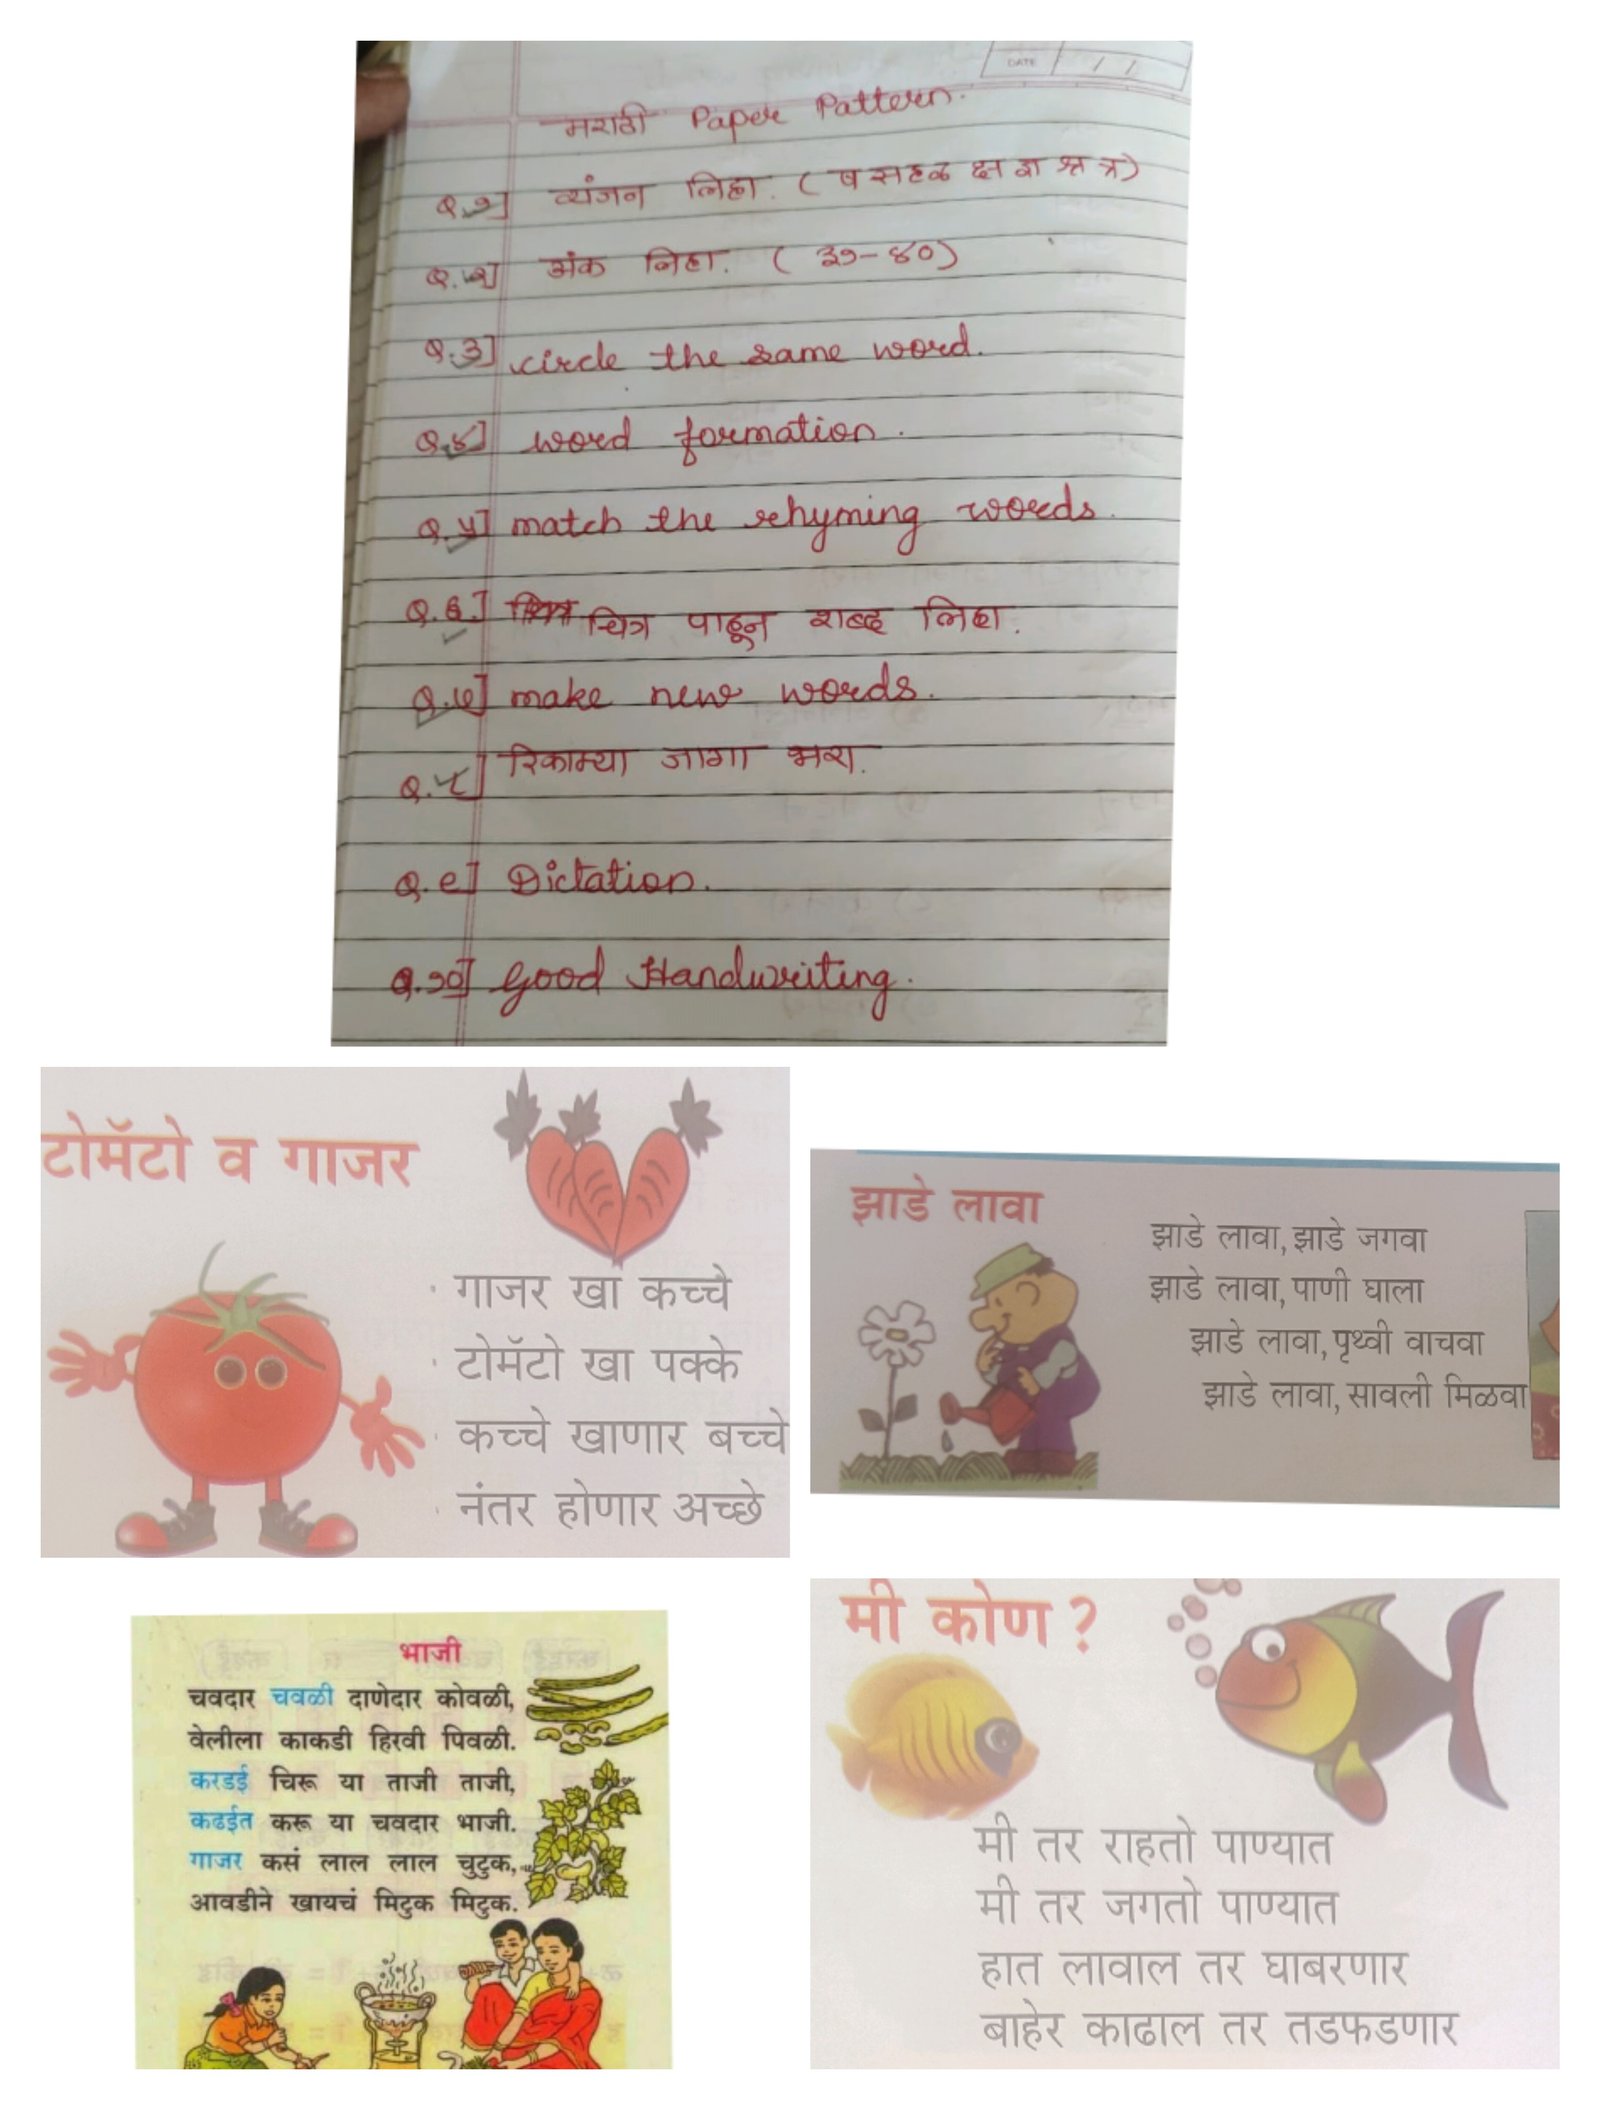 DATE / /
मराठी Paper Pattern.
Q.१] व्यंजन लिहा. ( ष स ह ळ क्ष ज्ञ श्र त्र )
Q.२] अंक लिहा. ( ३१-४० )
Q.३] circle the same word.
Q.४] word formation.
Q.५] match the rhyming words.
Q.६.] चित्र पाहून शब्द लिहा.
Q.७] make new words.
Q.८] रिकाम्या जागा भरा.
Q.९] Dictation.
Q.१०] Good Handwriting.
टोमॅटो व गाजर
गाजर खा कच्चे
टोमॅटो खा पक्के
कच्चे खाणार बच्चे
नंतर होणार अच्छे
झाडे लावा
झाडे लावा, झाडे जगवा
झाडे लावा, पाणी घाला
झाडे लावा, पृथ्वी वाचवा
झाडे लावा, सावली मिळवा
भाजी
चवदार चवळी दाणेदार कोवळी,
वेलीला काकडी हिरवी पिवळी.
करडई चिरू या ताजी ताजी,
कढईत करू या चवदार भाजी.
गाजर कसं लाल लाल चुटुक,
आवडीने खायचं मिटुक मिटुक.
मी कोण ?
मी तर राहतो पाण्यात
मी तर जगतो पाण्यात
हात लावाल तर घाबरणार
बाहेर काढाल तर तडफडणार